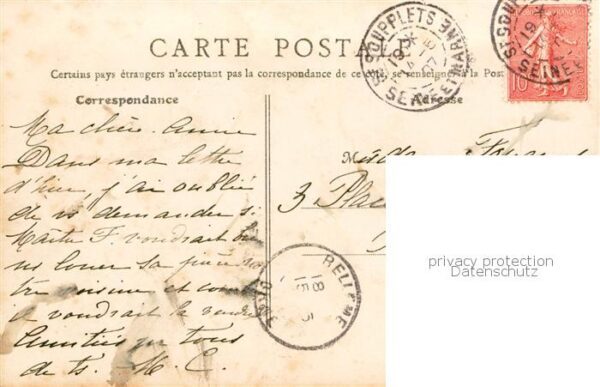 CARTE POSTALE
Certains pays étrangers n'acceptant pas la correspondance de ce côté, se renseigner à la Poste
Correspondance
Adresse
Ma chère Amie
Dans ma lettre
d'hier, j'ai oublié
de vs demander si
F. voudrait bien
ns louer sa
cuisine et
voudrait la vendre
Amitiés à tous
de ts. M. C.
3 Place
ST SOUPPLETS
SEINE ET MARNE
ST SOUPPLETS
SEINE
10
BELLEME
ORNE
privacy protection
Datenschutz